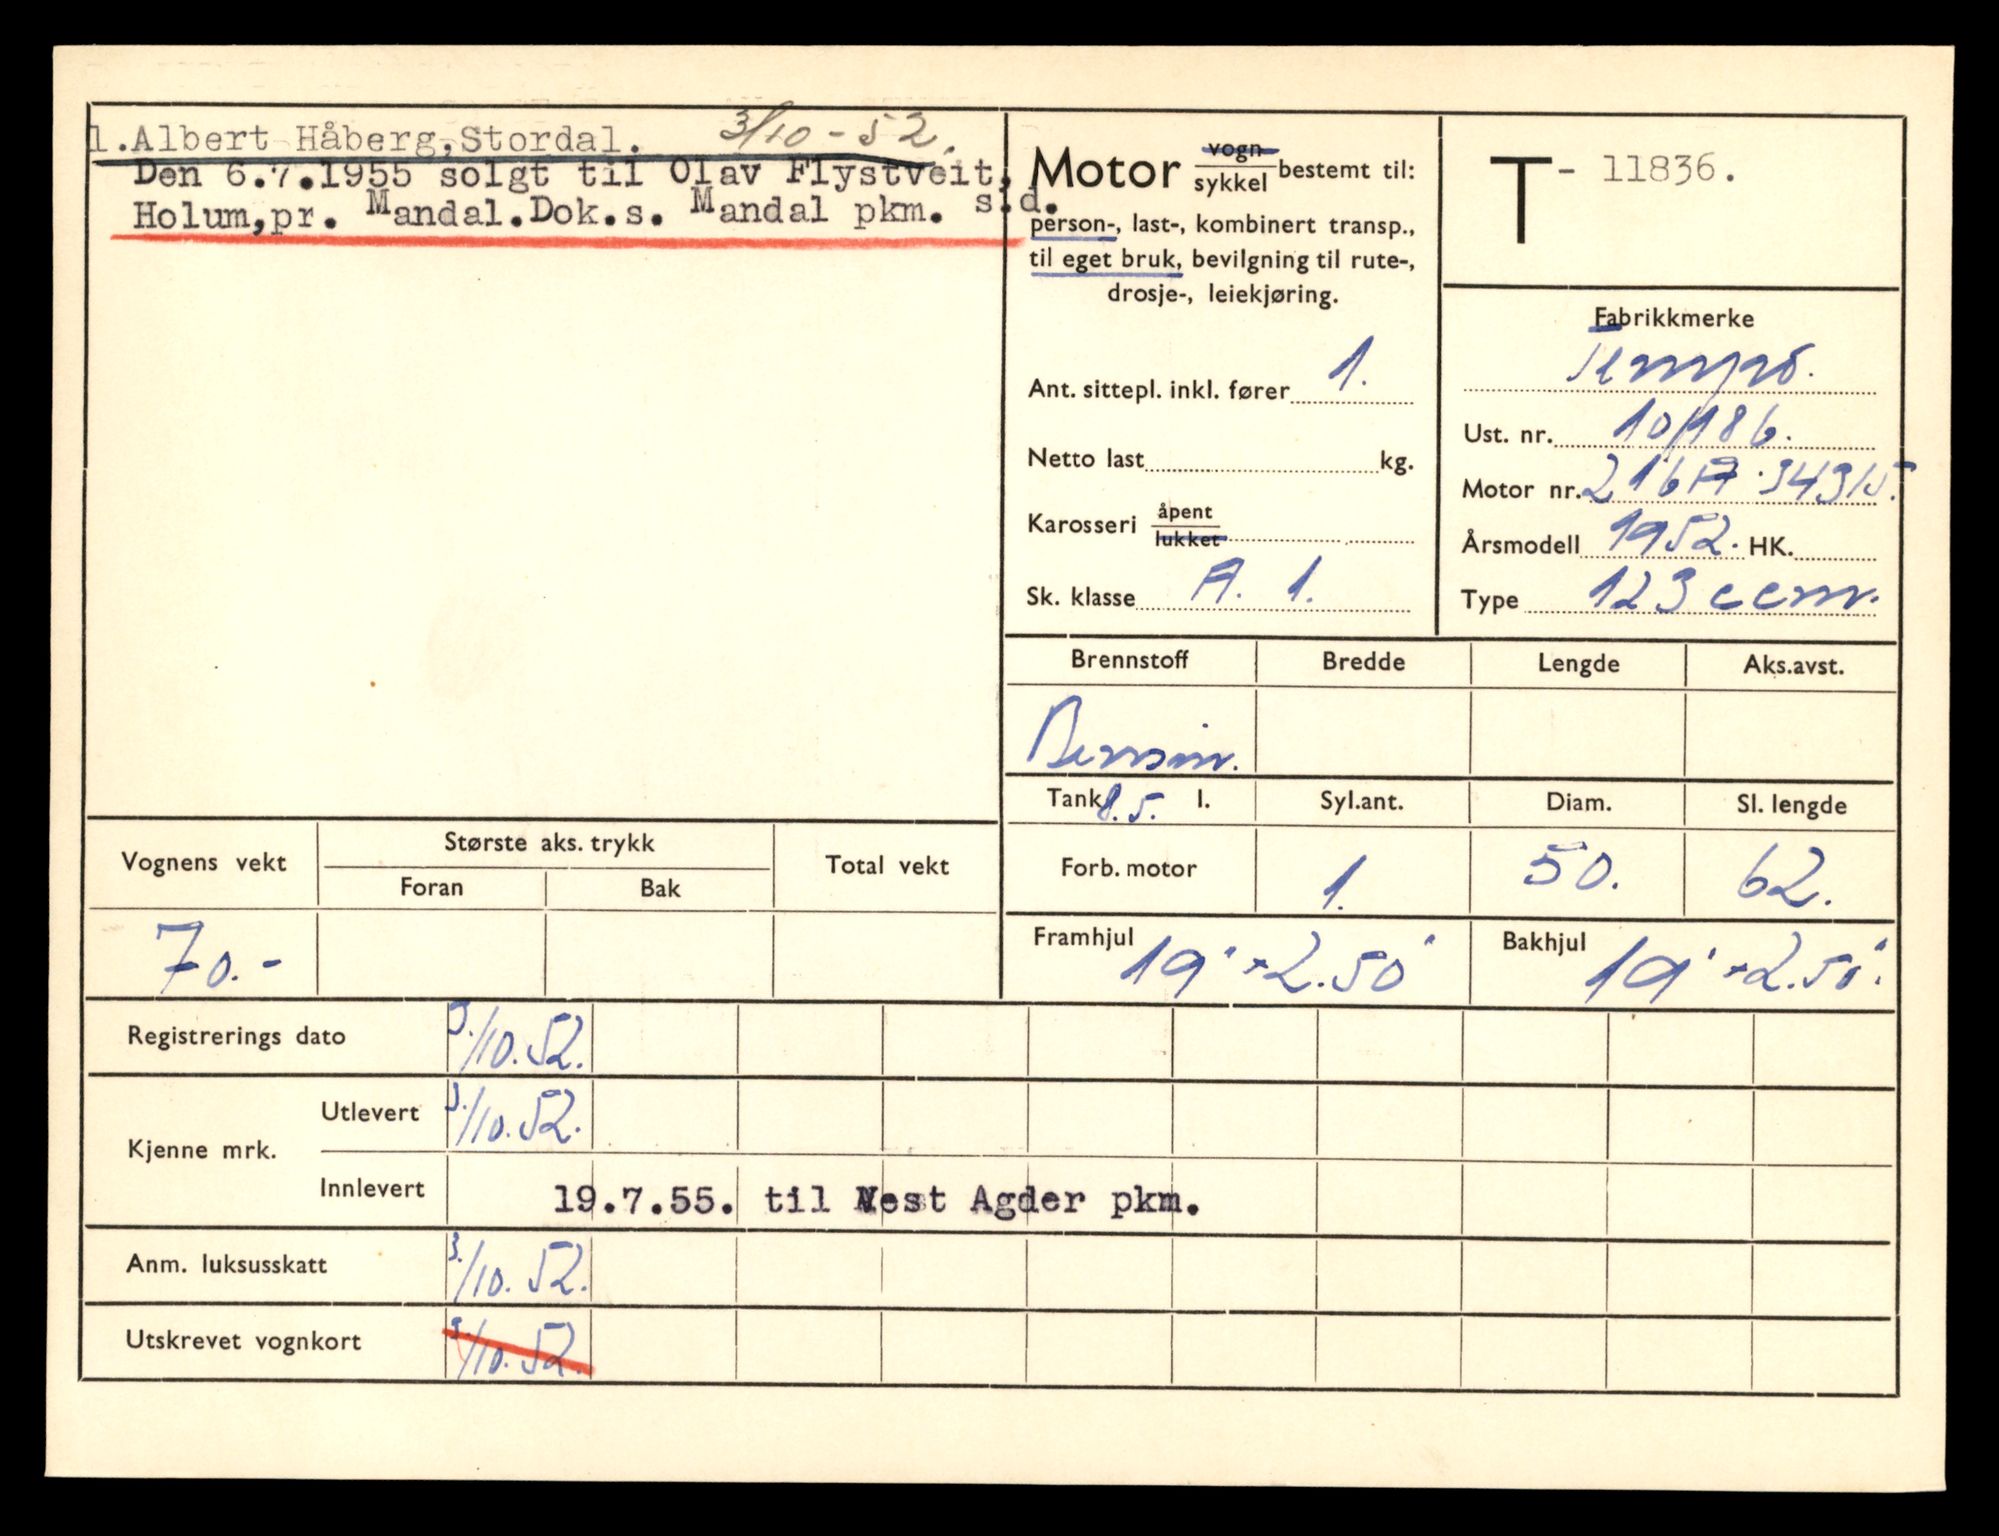 1.Albert Håberg,Stordal. 3/10-52.
Den 6.7.1955 solgt til Olav Flystveit,
Holum,pr. Mandal.Dok.s. Mandal pkm. s.d.
Motor vogn sykkel bestemt til:
person-, last-, kombinert transp.,
til eget bruk, bevilgning til rute-,
drosje-, leiekjøring.
Ant. sittepl. inkl. fører 1.
Netto last kg.
Karosseri åpent lukket
Sk. klasse A. 1.
T- 11836.
Fabrikkmerke
Tempo.
Ust. nr. 10/186.
Motor nr. 216A.34315.
Årsmodell 1952. HK.
Type 123 ccm.
Brennstoff Bredde Lengde Aks.avst.
Bensin.
Tank 8.5. l. Syl.ant. Diam. Sl. lengde
Forb. motor 1. 50. 62.
Framhjul 19"×2.50" Bakhjul 19"×2.50".
Vognens vekt Største aks. trykk Total vekt
Foran Bak
70.-
Registrerings dato 3./10.52.
Kjenne mrk. Utlevert 3./10.52.
Innlevert 19.7.55. til Vest Agder pkm.
Anm. luksusskatt 3./10.52.
Utskrevet vognkort 3./10.52.